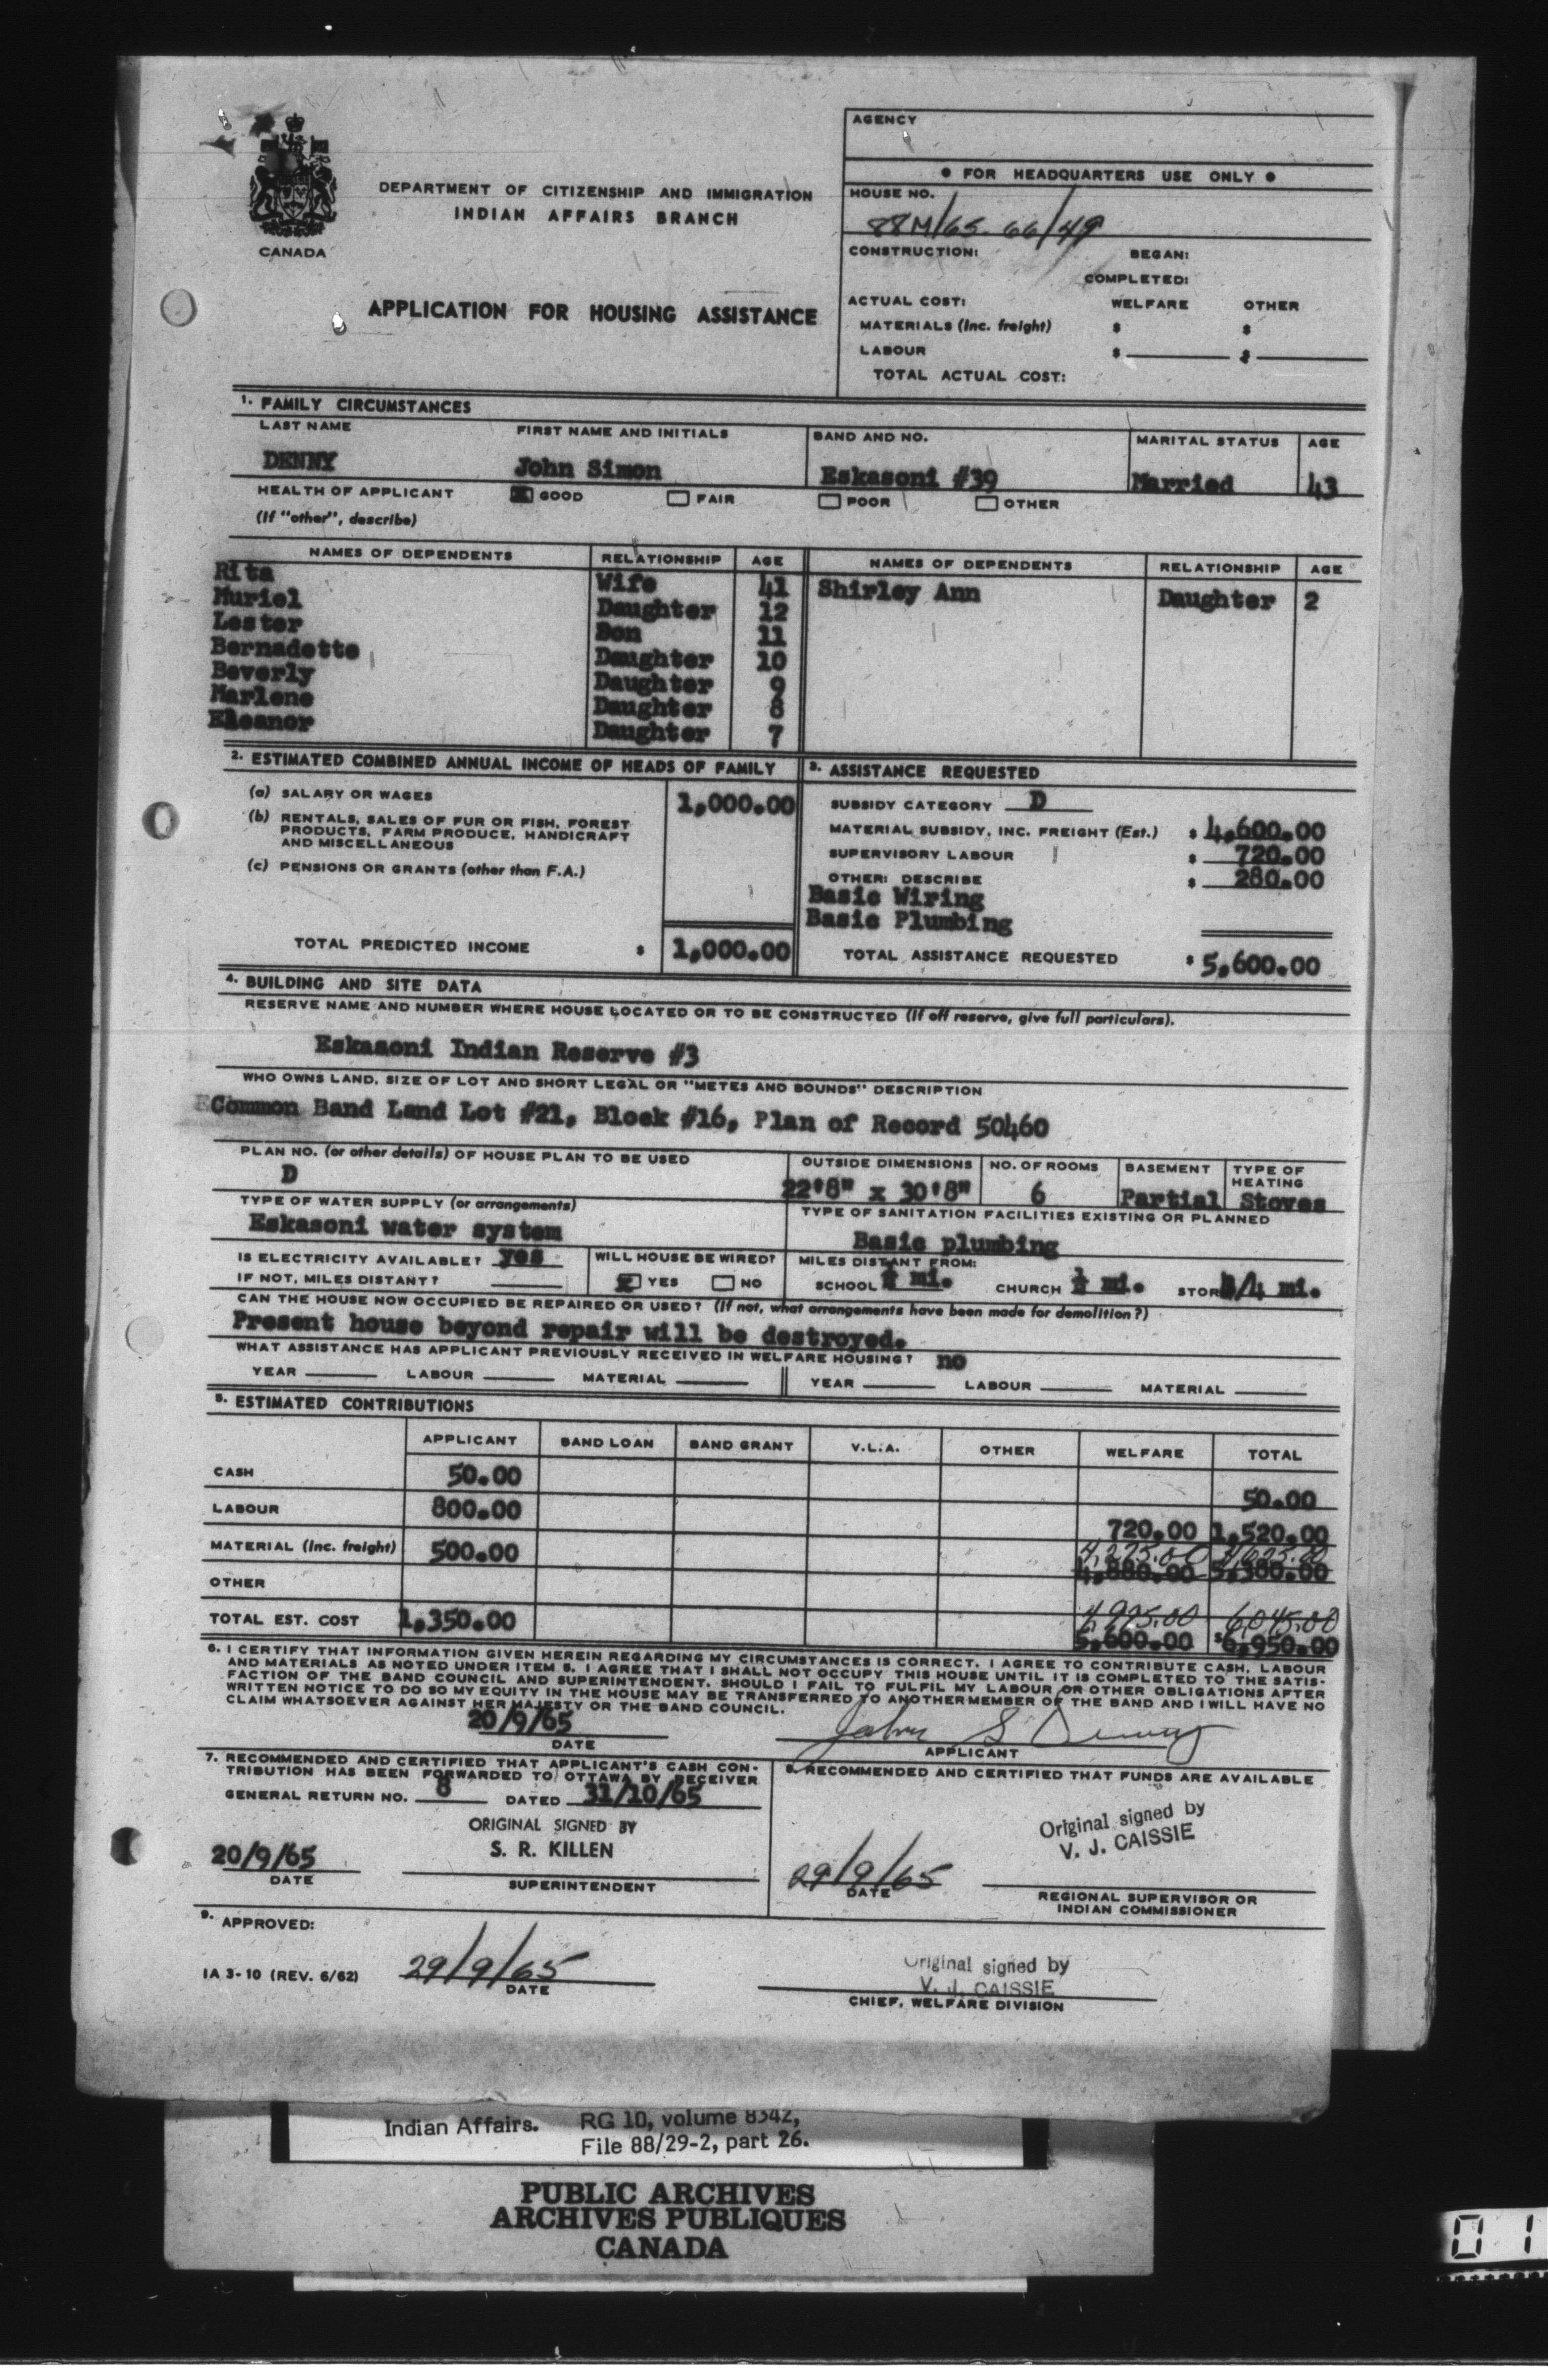 AGENCY
• FOR HEADQUARTERS USE ONLY •
DEPARTMENT OF CITIZENSHIP AND IMMIGRATION
INDIAN AFFAIRS BRANCH
CANADA
HOUSE NO.
88M/65-66/49
CONSTRUCTION: BEGAN:
COMPLETED:
APPLICATION FOR HOUSING ASSISTANCE
ACTUAL COST: WELFARE OTHER
MATERIALS (Inc. freight) $ $
LABOUR $ $
TOTAL ACTUAL COST:
1. FAMILY CIRCUMSTANCES
LAST NAME FIRST NAME AND INITIALS BAND AND NO. MARITAL STATUS AGE
DENNY John Simon Eskasoni #39 Married 43
HEALTH OF APPLICANT GOOD FAIR POOR OTHER
(If "other", describe)
NAMES OF DEPENDENTS RELATIONSHIP AGE NAMES OF DEPENDENTS RELATIONSHIP AGE
Rita Wife 41 Shirley Ann Daughter 2
Muriel Daughter 12
Lester Son 11
Bernadette Daughter 10
Beverly Daughter 9
Marlene Daughter 8
Eleanor Daughter 7
2. ESTIMATED COMBINED ANNUAL INCOME OF HEADS OF FAMILY 3. ASSISTANCE REQUESTED
(a) SALARY OR WAGES 1,000.00 SUBSIDY CATEGORY D
(b) RENTALS, SALES OF FUR OR FISH, FOREST
PRODUCTS, FARM PRODUCE, HANDICRAFT
AND MISCELLANEOUS
MATERIAL SUBSIDY, INC. FREIGHT (Est.) $ 4,600.00
SUPERVISORY LABOUR $ 720.00
(c) PENSIONS OR GRANTS (other than F.A.)
OTHER: DESCRIBE $ 280.00
Basic Wiring
Basic Plumbing
TOTAL PREDICTED INCOME $ 1,000.00 TOTAL ASSISTANCE REQUESTED $ 5,600.00
4. BUILDING AND SITE DATA
RESERVE NAME AND NUMBER WHERE HOUSE LOCATED OR TO BE CONSTRUCTED (If off reserve, give full particulars).
Eskasoni Indian Reserve #3
WHO OWNS LAND, SIZE OF LOT AND SHORT LEGAL OR "METES AND BOUNDS" DESCRIPTION
Common Band Land Lot #21, Block #16, Plan of Record 50460
PLAN NO. (or other details) OF HOUSE PLAN TO BE USED OUTSIDE DIMENSIONS NO. OF ROOMS BASEMENT TYPE OF HEATING
D 22'8" x 30'8" 6 Partial Stoves
TYPE OF WATER SUPPLY (or arrangements) TYPE OF SANITATION FACILITIES EXISTING OR PLANNED
Eskasoni water system Basic plumbing
IS ELECTRICITY AVAILABLE? yes WILL HOUSE BE WIRED? MILES DISTANT FROM:
IF NOT, MILES DISTANT? YES NO SCHOOL mi. CHURCH ½ mi. STOR 3/4 mi.
CAN THE HOUSE NOW OCCUPIED BE REPAIRED OR USED? (If not, what arrangements have been made for demolition?)
Present house beyond repair will be destroyed.
WHAT ASSISTANCE HAS APPLICANT PREVIOUSLY RECEIVED IN WELFARE HOUSING? no
YEAR LABOUR MATERIAL YEAR LABOUR MATERIAL
5. ESTIMATED CONTRIBUTIONS
APPLICANT BAND LOAN BAND GRANT V.L.A. OTHER WELFARE TOTAL
CASH 50.00 50.00
LABOUR 800.00 720.00 1,520.00
4,225.00 4,625.00
MATERIAL (Inc. freight) 500.00 4,880.00 5,380.00
OTHER
4,975.00 6,045.00
TOTAL EST. COST 1,350.00 5,600.00 $6,950.00
6. I CERTIFY THAT INFORMATION GIVEN HEREIN REGARDING MY CIRCUMSTANCES IS CORRECT. I AGREE TO CONTRIBUTE CASH, LABOUR
AND MATERIALS AS NOTED UNDER ITEM 5. I AGREE THAT I SHALL NOT OCCUPY THIS HOUSE UNTIL IT IS COMPLETED TO THE SATIS-
FACTION OF THE BAND COUNCIL AND SUPERINTENDENT. SHOULD I FAIL TO FULFIL MY LABOUR OR OTHER OBLIGATIONS AFTER
WRITTEN NOTICE TO DO SO MY EQUITY IN THE HOUSE MAY BE TRANSFERRED TO ANOTHER MEMBER OF THE BAND AND I WILL HAVE NO
CLAIM WHATSOEVER AGAINST HER MAJESTY OR THE BAND COUNCIL.
20/9/65 John S Denny
DATE APPLICANT
7. RECOMMENDED AND CERTIFIED THAT APPLICANT'S CASH CON-
TRIBUTION HAS BEEN FORWARDED TO OTTAWA BY RECEIVER
GENERAL RETURN NO. 8 DATED 31/10/65
8. RECOMMENDED AND CERTIFIED THAT FUNDS ARE AVAILABLE
ORIGINAL SIGNED BY
S. R. KILLEN
Original signed by
V. J. CAISSIE
20/9/65 29/9/65
DATE SUPERINTENDENT DATE REGIONAL SUPERVISOR OR
INDIAN COMMISSIONER
9. APPROVED:
Original signed by
V. J. CAISSIE
IA 3-10 (REV. 6/62) 29/9/65
DATE CHIEF, WELFARE DIVISION
Indian Affairs. RG 10, volume 8342,
File 88/29-2, part 26.
PUBLIC ARCHIVES
ARCHIVES PUBLIQUES
CANADA
01